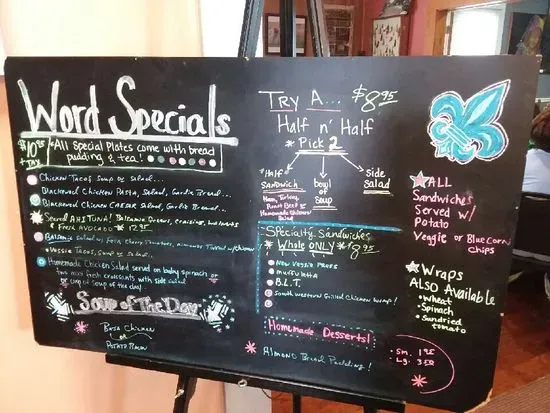 Word Specials
$10.95 + TAX
*All Special Plates come with bread
pudding & tea!
Chicken Tacos Soup or Salad...
Blackened Chicken PASTA, Salad, Garlic Bread...
Blackened Chicken CAESAR Salad, Garlic Bread...
Seared AHI TUNA! Balsamic Greens, craisins, walnuts
& Fresh AVOCADO * 12.95
Balsamic salad w/ Feta Cherry Tomatoes,
Veggie Tacos, Soup or Salad...
Homemade Chicken Salad served on baby spinach or
two mini fresh croissants with side salad
or cup of soup of the day!
Soup Of The Day
* Chicken
or
Potato
TRY A... $8.95
Half n' Half
* Pick 2
*Half
SANDWICH
Ham, Turkey,
Roast Beef or
Homemade Chicken
Salad
bowl
of
Soup
side
salad
Specialty Sandwiches
* Whole ONLY * 8.95
muffuletta
B.L.T.
Southwestern Grilled Chicken Wrap!
Homemade Desserts!
* Almond Bread Pudding!
Sm. 1.95
Lg.
* ALL
Sandwiches
Served w/
Potato
Veggie or Blue Corn
Chips
* Wraps
ALSO Available
wheat
Spinach
Sundried
tomato